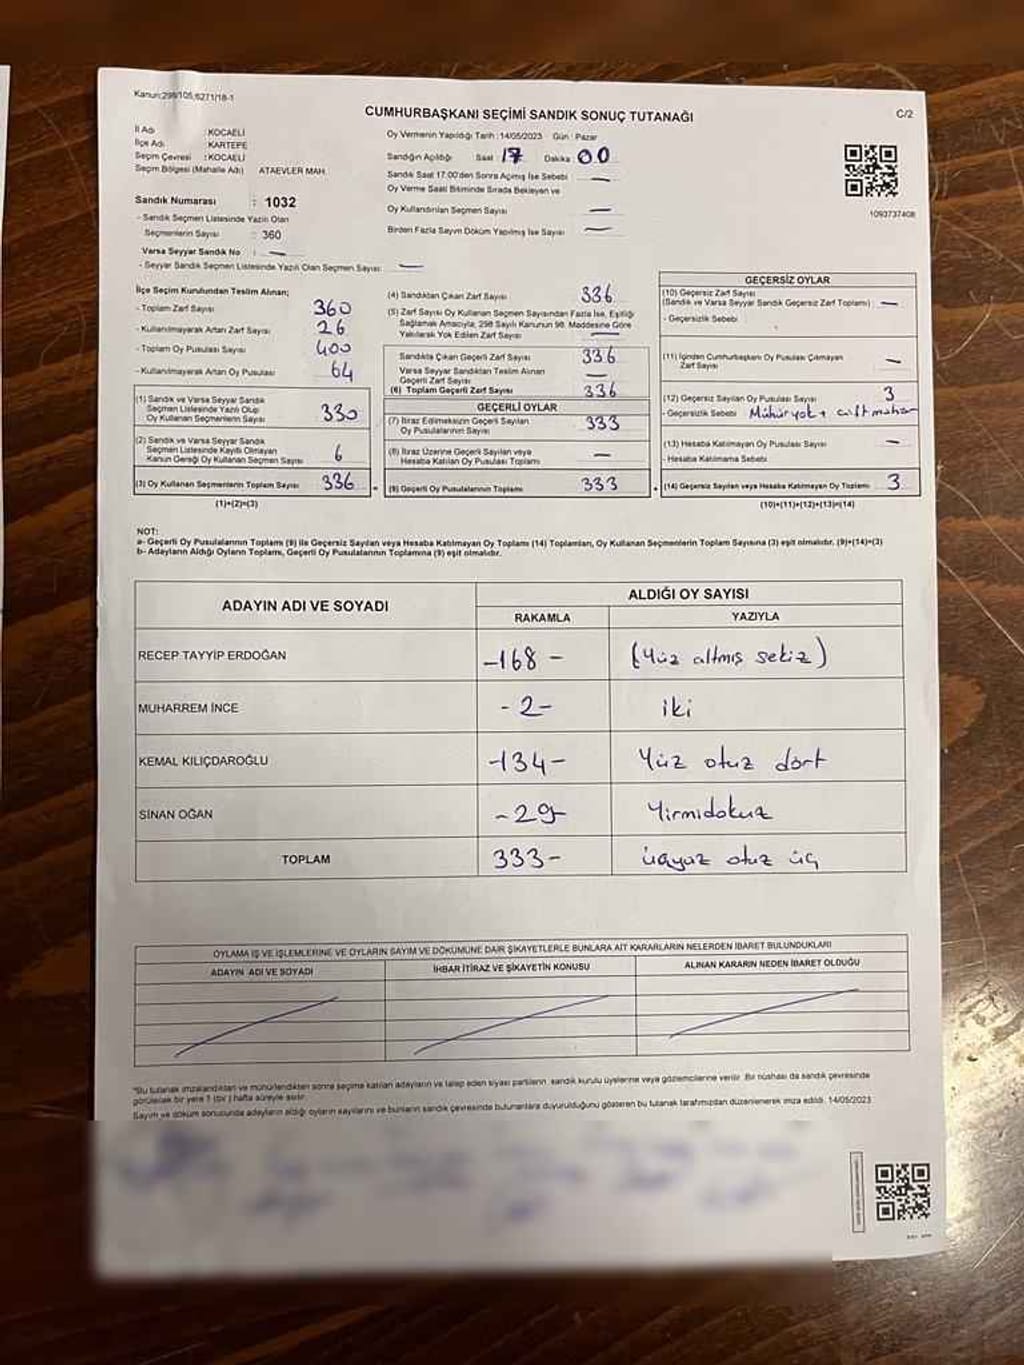 Kanun:298/105,6271/18-1
CUMHURBAŞKANI SEÇİMİ SANDIK SONUÇ TUTANAĞI
C/2
İl Adı : KOCAELİ
İlçe Adı : KARTEPE
Seçim Çevresi : KOCAELİ
Seçim Bölgesi (Mahalle Adı) ATAEVLER MAH.
Sandık Numarası : 1032
- Sandık Seçmen Listesinde Yazılı Olan
Seçmenlerin Sayısı : 360
Varsa Seyyar Sandık No : —
- Seyyar Sandık Seçmen Listesinde Yazılı Olan Seçmen Sayısı: —
Oy Vermenin Yapıldığı Tarih : 14/05/2023 Gün : Pazar
Sandığın Açıldığı Saat 17 Dakika : 00
Sandık Saat 17:00'den Sonra Açmış İse Sebebi —
Oy Verme Saati Bitiminde Sırada Bekleyen ve
Oy Kullandırılan Seçmen Sayısı —
Birden Fazla Sayım Döküm Yapılmış İse Sayısı —
1093737408
İlçe Seçim Kurulundan Teslim Alınan;
- Toplam Zarf Sayısı 360
- Kullanılmayarak Artan Zarf Sayısı 26
- Toplam Oy Pusulası Sayısı 400
- Kullanılmayarak Artan Oy Pusulası 64
(1) Sandık ve Varsa Seyyar Sandık
Seçmen Listesinde Yazılı Olup
Oy Kullanan Seçmenlerin Sayısı 330
(2) Sandık ve Varsa Seyyar Sandık
Seçmen Listesinde Kayıtlı Olmayan
Kanun Gereği Oy Kullanan Seçmen Sayısı 6
(3) Oy Kullanan Seçmenlerin Toplam Sayısı 336
(1)+(2)=(3)
(4) Sandıktan Çıkan Zarf Sayısı 336
(5) Zarf Sayısı Oy Kullanan Seçmen Sayısından Fazla İse, Eşitliği
Sağlamak Amacıyla, 298 Sayılı Kanunun 98. Maddesine Göre
Yakılarak Yok Edilen Zarf Sayısı —
Sandıkta Çıkan Geçerli Zarf Sayısı 336
Varsa Seyyar Sandıktan Teslim Alınan
Geçerli Zarf Sayısı —
(6) Toplam Geçerli Zarf Sayısı 336
GEÇERLİ OYLAR
(7) İtiraz Edilmeksizin Geçerli Sayılan
Oy Pusulalarının Sayısı 333
(8) İtiraz Üzerine Geçerli Sayılan veya
Hesaba Katılan Oy Pusulası Toplamı —
(9) Geçerli Oy Pusulalarının Toplamı 333
GEÇERSİZ OYLAR
(10) Geçersiz Zarf Sayısı
(Sandık ve Varsa Seyyar Sandık Geçersiz Zarf Toplamı) : —
- Geçersizlik Sebebi
(11) İçinden Cumhurbaşkanı Oy Pusulası Çıkmayan
Zarf Sayısı —
(12) Geçersiz Sayılan Oy Pusulası Sayısı 3
- Geçersizlik Sebebi Mühür yok + çift mühür
(13) Hesaba Katılmayan Oy Pusulası Sayısı —
- Hesaba Katılmama Sebebi
(14) Geçersiz Sayılan veya Hesaba Katılmayan Oy Toplamı 3
(10)+(11)+(12)+(13)=(14)
NOT:
a- Geçerli Oy Pusulalarının Toplamı (9) ile Geçersiz Sayılan veya Hesaba Katılmayan Oy Toplamı (14) Toplamları, Oy Kullanan Seçmenlerin Toplam Sayısına (3) eşit olmalıdır. (9)+(14)=(3)
b- Adayların Aldığı Oyların Toplamı, Geçerli Oy Pusulalarının Toplamına (9) eşit olmalıdır.
ADAYIN ADI VE SOYADI
ALDIĞI OY SAYISI
RAKAMLA YAZIYLA
RECEP TAYYİP ERDOĞAN -168- (Yüz altmış sekiz)
MUHARREM İNCE -2- iki
KEMAL KILIÇDAROĞLU -134- Yüz otuz dört
SİNAN OĞAN -29- Yirmidokuz
TOPLAM 333- üçyüz otuz üç
OYLAMA İŞ VE İŞLEMLERİNE VE OYLARIN SAYIM VE DÖKÜMÜNE DAİR ŞİKAYETLERLE BUNLARA AİT KARARLARIN NELERDEN İBARET BULUNDUKLARI
ADAYIN ADI VE SOYADI İHBAR İTİRAZ VE ŞİKAYETİN KONUSU ALINAN KARARIN NEDEN İBARET OLDUĞU
*Bu tutanak imzalandıktan ve mühürlendikten sonra seçime katılan adayların ve talep eden siyasi partilerin sandık kurulu üyelerine veya gözlemcilerine verilir. Bir nüshası da sandık çevresinde
görülecek bir yere 1 (bir) hafta süreyle asılır.
Sayım ve döküm sonucunda adayların aldığı oyların sayılarını ve bunların sandık çevresinde bulunanlara duyurulduğunu gösteren bu tutanak tarafımızdan düzenlenerek imza edildi. 14/05/2023